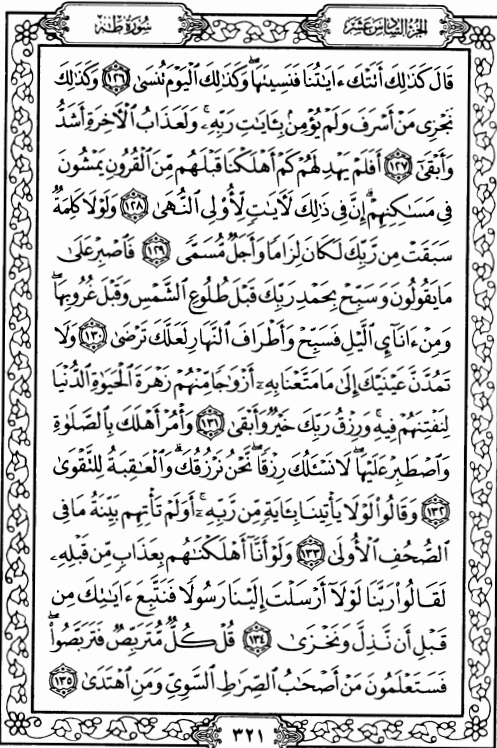 الجزء السادس عشر
سورة طه
قَالَ كَذَٰلِكَ أَتَتْكَ ءَايَٰتُنَا فَنَسِيتَهَا ۖ وَكَذَٰلِكَ ٱلْيَوْمَ تُنسَىٰ ۝١٢٦ وَكَذَٰلِكَ
نَجْزِى مَنْ أَسْرَفَ وَلَمْ يُؤْمِنۢ بِـَٔايَٰتِ رَبِّهِۦ ۚ وَلَعَذَابُ ٱلْءَاخِرَةِ أَشَدُّ
وَأَبْقَىٰٓ ۝١٢٧ أَفَلَمْ يَهْدِ لَهُمْ كَمْ أَهْلَكْنَا قَبْلَهُم مِّنَ ٱلْقُرُونِ يَمْشُونَ
فِى مَسَٰكِنِهِمْ ۗ إِنَّ فِى ذَٰلِكَ لَـَٔايَٰتٍ لِّأُو۟لِى ٱلنُّهَىٰ ۝١٢٨ وَلَوْلَا كَلِمَةٌ
سَبَقَتْ مِن رَّبِّكَ لَكَانَ لِزَامًا وَأَجَلٌ مُّسَمًّى ۝١٢٩ فَٱصْبِرْ عَلَىٰ
مَا يَقُولُونَ وَسَبِّحْ بِحَمْدِ رَبِّكَ قَبْلَ طُلُوعِ ٱلشَّمْسِ وَقَبْلَ غُرُوبِهَا ۖ
وَمِنْ ءَانَآئِ ٱلَّيْلِ فَسَبِّحْ وَأَطْرَافَ ٱلنَّهَارِ لَعَلَّكَ تَرْضَىٰ ۝١٣٠ وَلَا
تَمُدَّنَّ عَيْنَيْكَ إِلَىٰ مَا مَتَّعْنَا بِهِۦٓ أَزْوَٰجًا مِّنْهُمْ زَهْرَةَ ٱلْحَيَوٰةِ ٱلدُّنْيَا
لِنَفْتِنَهُمْ فِيهِ ۚ وَرِزْقُ رَبِّكَ خَيْرٌ وَأَبْقَىٰ ۝١٣١ وَأْمُرْ أَهْلَكَ بِٱلصَّلَوٰةِ
وَٱصْطَبِرْ عَلَيْهَا ۖ لَا نَسْـَٔلُكَ رِزْقًا ۖ نَّحْنُ نَرْزُقُكَ ۗ وَٱلْعَٰقِبَةُ لِلتَّقْوَىٰ
۝١٣٢ وَقَالُوا۟ لَوْلَا يَأْتِينَا بِـَٔايَةٍ مِّن رَّبِّهِۦٓ ۚ أَوَلَمْ تَأْتِهِم بَيِّنَةُ مَا فِى
ٱلصُّحُفِ ٱلْأُولَىٰ ۝١٣٣ وَلَوْ أَنَّآ أَهْلَكْنَٰهُم بِعَذَابٍ مِّن قَبْلِهِۦ
لَقَالُوا۟ رَبَّنَا لَوْلَآ أَرْسَلْتَ إِلَيْنَا رَسُولًا فَنَتَّبِعَ ءَايَٰتِكَ مِن
قَبْلِ أَن نَّذِلَّ وَنَخْزَىٰ ۝١٣٤ قُلْ كُلٌّ مُّتَرَبِّصٌ فَتَرَبَّصُوا۟ ۖ
فَسَتَعْلَمُونَ مَنْ أَصْحَٰبُ ٱلصِّرَٰطِ ٱلسَّوِىِّ وَمَنِ ٱهْتَدَىٰ ۝١٣٥
٣٢١